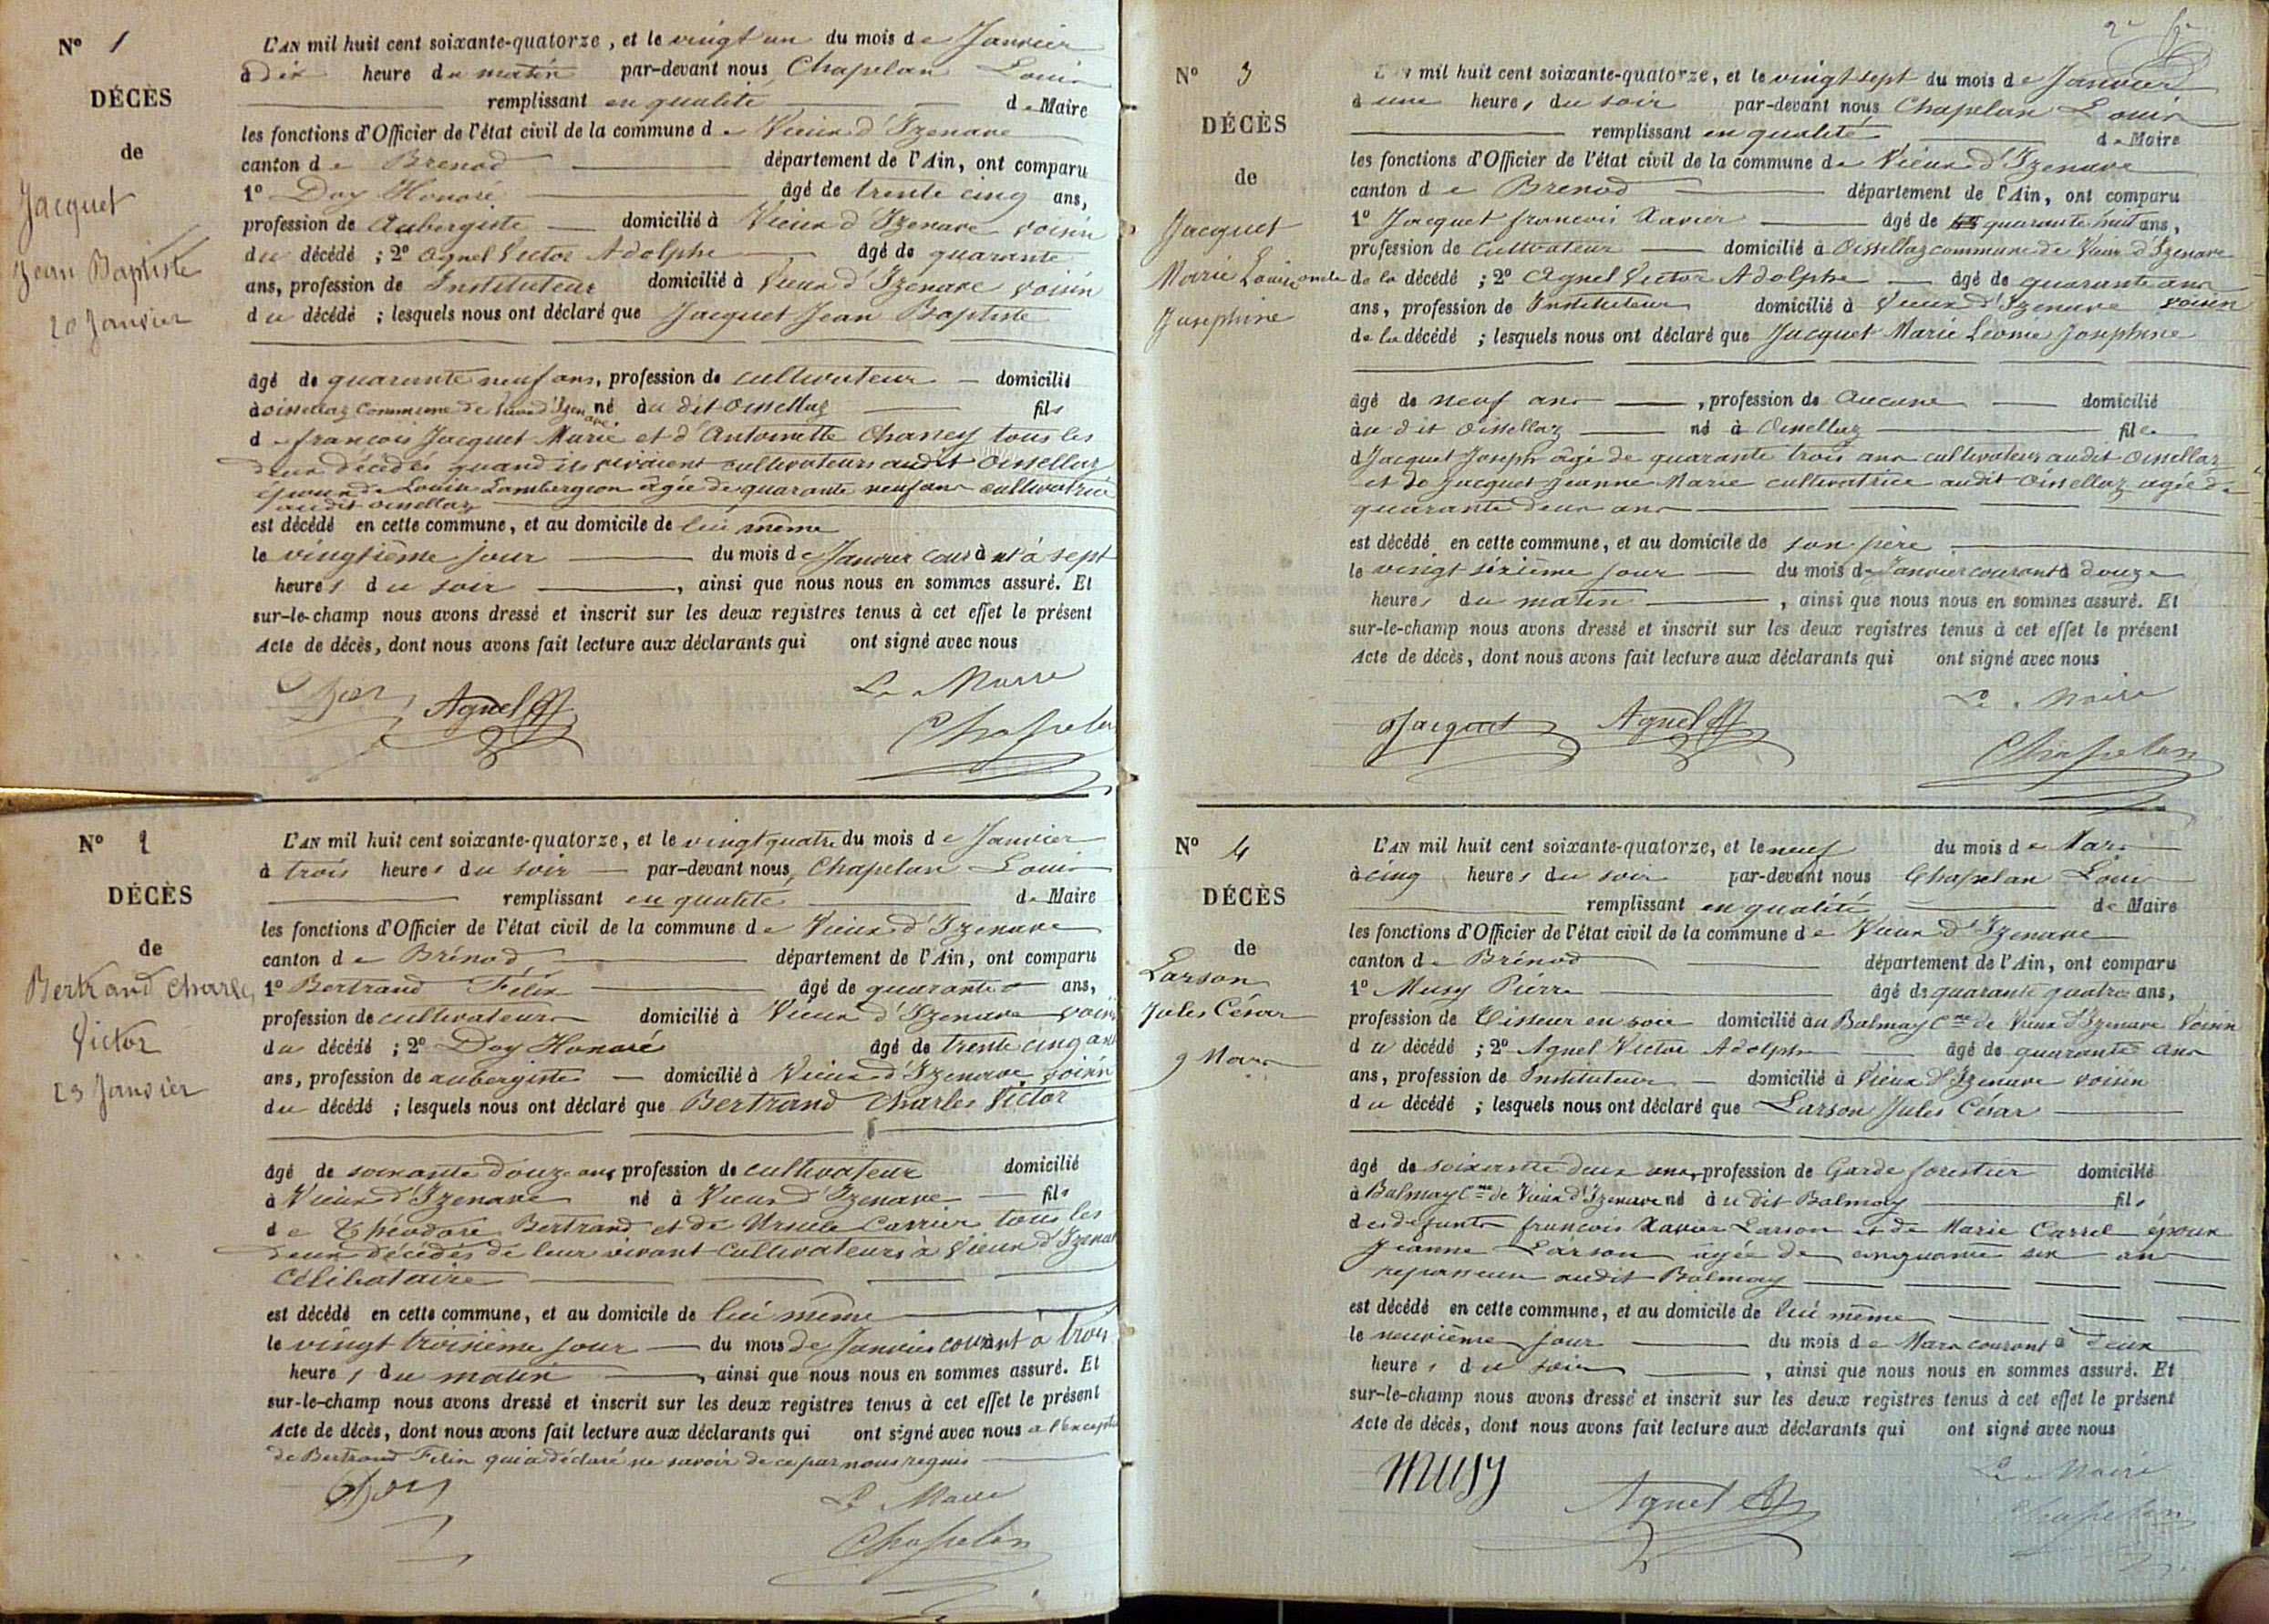 Nº 1
DÉCÈS
de
Jacquet
Jean Baptiste
20 Janvier
L'AN mil huit cent soixante-quatorze, et le vingt un du mois de Janvier
à dix heure du matin par-devant nous Chapelan Louis
remplissant en qualité de Maire
les fonctions d'Officier de l'état civil de la commune de Vieux d'Izenave
canton de Brenod département de l'Ain, ont comparu
1º Doy Honoré âgé de trente cinq ans,
profession de Aubergiste domicilié à Vieux d'Izenave voisin
du décédé ; 2º Agnel Victor Adolphe âgé de quarante
ans, profession de Instituteur domicilié à Vieux d'Izenave voisin
du décédé ; lesquels nous ont déclaré que Jacquet Jean Baptiste
âgé de quarante neuf ans, profession de cultivateur domicilié
à oissellaz commune de Vieux d'Izenave né au dit Oissellaz fils
de francois Jacquet Marie et d'Antoinette Charvey tous les
deux décédés quand ils vivaient cultivateurs audit Oissellaz
époux de Louise Lambergeon âgée de quarante neuf ans cultivatrice
audit oissellaz
est décédé en cette commune, et au domicile de lui même
le vingtième jour du mois de Janvier courant à sept
heures du soir, ainsi que nous nous en sommes assuré. Et
sur-le-champ nous avons dressé et inscrit sur les deux registres tenus à cet effet le présent
Acte de décès, dont nous avons fait lecture aux déclarants qui ont signé avec nous
Le Maire
Doy Agnel Chapelan
Nº 2
DÉCÈS
de
Bertrand Charles
Victor
23 Janvier
L'AN mil huit cent soixante-quatorze, et le vingt quatre du mois de Janvier
à trois heures du soir par-devant nous, Chapelan Louis
remplissant en qualité de Maire
les fonctions d'Officier de l'état civil de la commune de Vieux d'Izenave
canton de Brénod département de l'Ain, ont comparu
1º Bertrand Félix âgé de quarante ans,
profession de cultivateur domicilié à Vieux d'Izenave voisin
du décédé ; 2º Doy Honoré âgé de trente cinq ans
ans, profession de aubergiste domicilié à Vieux d'Izenave voisin
du décédé ; lesquels nous ont déclaré que Bertrand Charles Victor
âgé de soixante douze ans profession de cultivateur domicilié
à Vieux d'Izenave né à Vieux d'Izenave fils
de Théodore Bertrand et de Ursule Carrier tous les
deux décédés de leur vivant cultivateurs à Vieux d'Izenave
Célibataire
est décédé en cette commune, et au domicile de lui même
le vingt troisième jour du mois de Janvier courant à trois
heures du matin, ainsi que nous nous en sommes assuré. Et
sur-le-champ nous avons dressé et inscrit sur les deux registres tenus à cet effet le présent
Acte de décès, dont nous avons fait lecture aux déclarants qui ont signé avec nous a l'exception
de Bertrand Félix qui a déclaré ne savoir de ce par nous requis
Doy Le Maire
Chapelan
2e
Nº 3
DÉCÈS
de
Jacquet
Marie Léonie
Josephine
L'AN mil huit cent soixante-quatorze, et le vingt sept du mois de Janvier
à une heure, du soir par-devant nous Chapelan Louis
remplissant en qualité de Maire
les fonctions d'Officier de l'état civil de la commune de Vieux d'Izenave
canton de Brenod département de l'Ain, ont comparu
1º Jacquet francois Xavier âgé de quarante huit ans,
profession de cultivateur domicilié à Oissellaz commune de Vieux d'Izenave
oncle de la décédé ; 2º Agnel Victor Adolphe âgé de quarante ans
ans, profession de Instituteur domicilié à Vieux d'Izenave voisin
de la décédé ; lesquels nous ont déclaré que Jacquet Marie Léonie Josephine
âgé de neuf ans, profession de Aucune domicilié
au dit Oissellaz né à Oissellaz fille
d Jacquet Joseph âgé de quarante trois ans cultivateur audit Oissellaz
et de Jacquet Jeanne Marie cultivatrice audit Oissellaz agée de
quarante deux ans
est décédé en cette commune, et au domicile de son père
le vingt sixième jour du mois de Janvier courant à douze
heures du matin, ainsi que nous nous en sommes assuré. Et
sur-le-champ nous avons dressé et inscrit sur les deux registres tenus à cet effet le présent
Acte de décès, dont nous avons fait lecture aux déclarants qui ont signé avec nous
Le Maire
Jacquet Agnel Chapelan
Nº 4
DÉCÈS
de
Larson
Jules César
9 Mars
L'AN mil huit cent soixante-quatorze, et le neuf du mois de Mars
à cinq heures du soir par-devant nous Chapelan Louis
remplissant en qualité de Maire
les fonctions d'Officier de l'état civil de la commune de Vieux d'Izenave
canton de Brénod département de l'Ain, ont comparu
1º Musy Pierre âgé de quarante quatre ans,
profession de Tisseur en soie domicilié au Balmay Cne de Vieux d'Izenave Voisin
du décédé ; 2º Agnel Victor Adolphe âgé de quarante ans
ans, profession de Instituteur domicilié à Vieux d'Izenave voisin
du décédé ; lesquels nous ont déclaré que Larson Jules César
âgé de soixante deux ans, profession de Garde forestier domicilié
à Balmay Cne de Vieux d'Izenave né au dit Balmay fils
des defunts francois Xavier Larson et de Marie Carrel époux
Jeanne Larson agée de cinquante six ans
repasseuse audit Balmay
est décédé en cette commune, et au domicile de lui même
le neuvième jour du mois de Mars courant à deux
heures du soir, ainsi que nous nous en sommes assuré. Et
sur-le-champ nous avons dressé et inscrit sur les deux registres tenus à cet effet le présent
Acte de décès, dont nous avons fait lecture aux déclarants qui ont signé avec nous
musy Le Maire
Agnel Chapelan